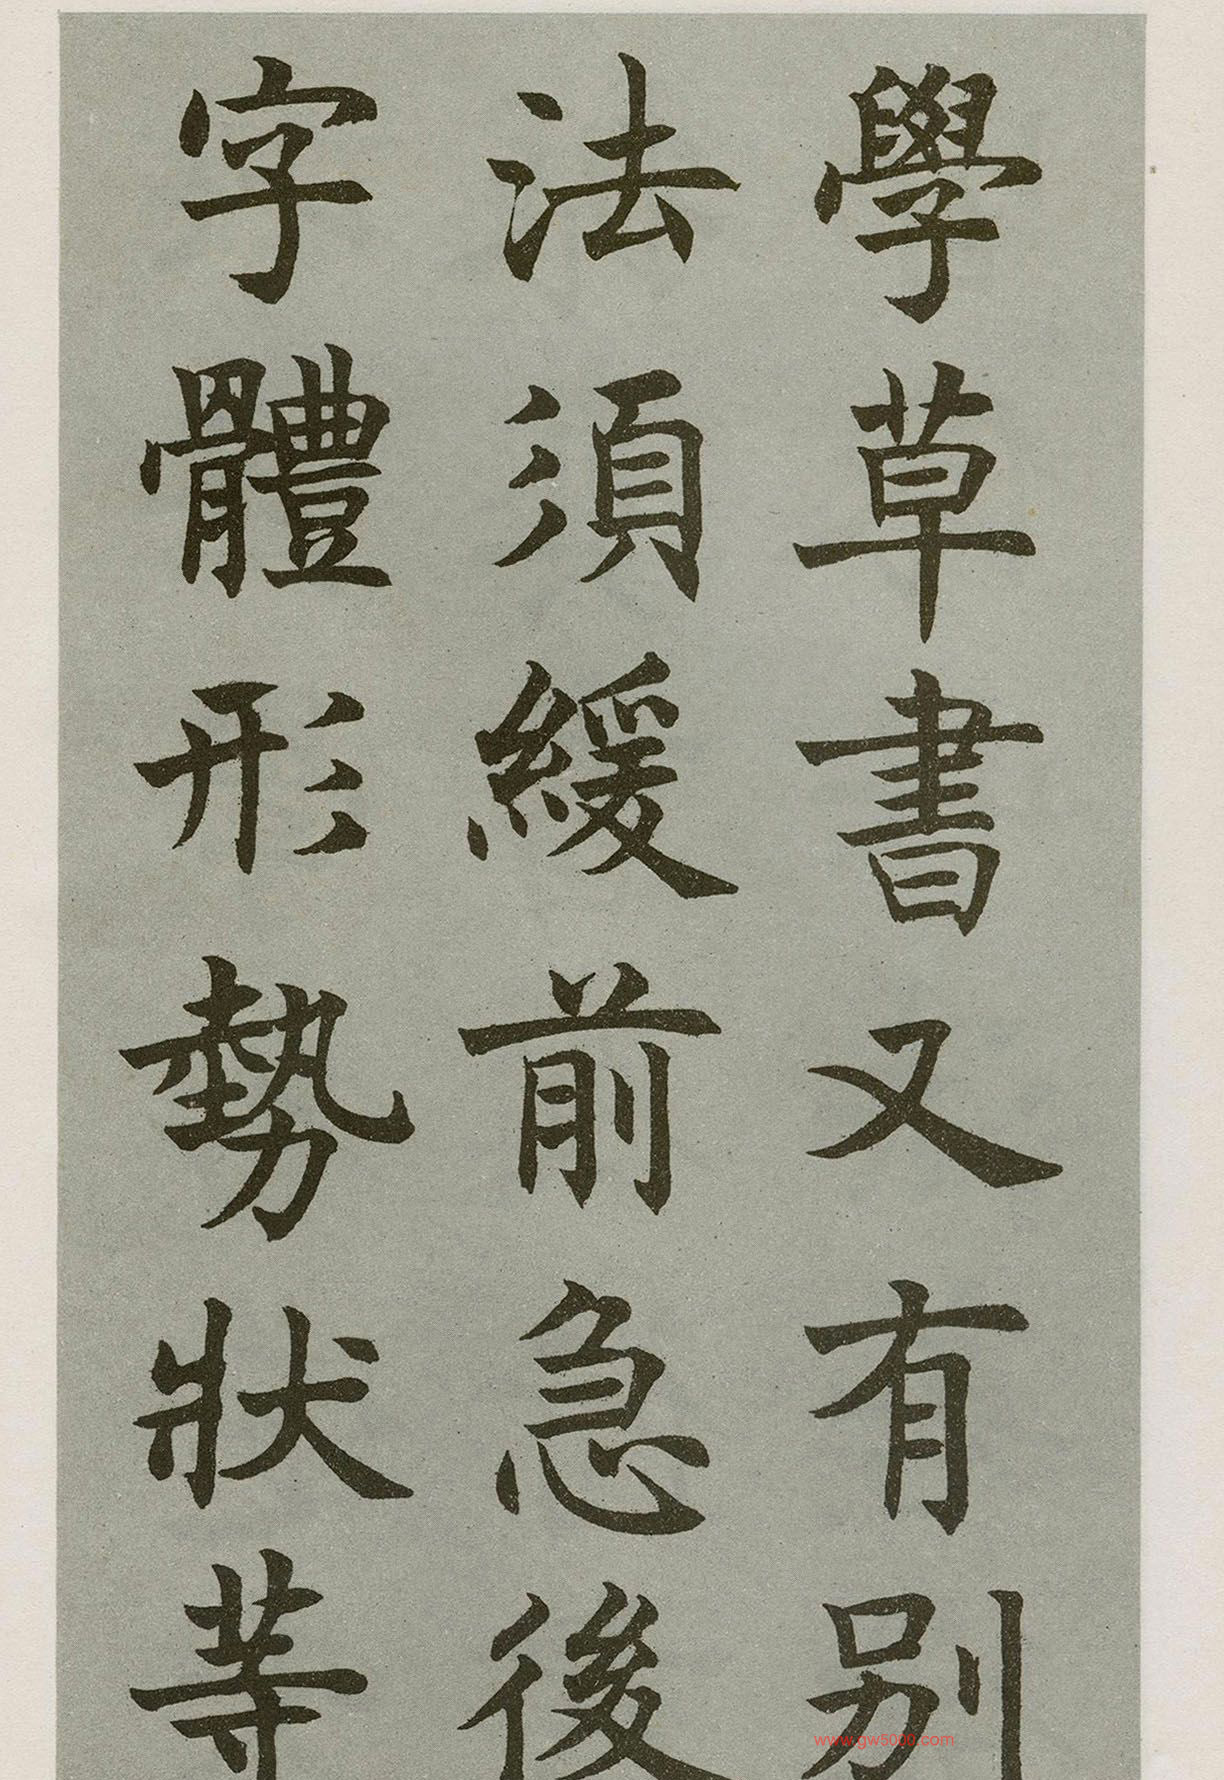 學草書又有别
法須緩前急後
字體形勢狀等
www.gw5000.com